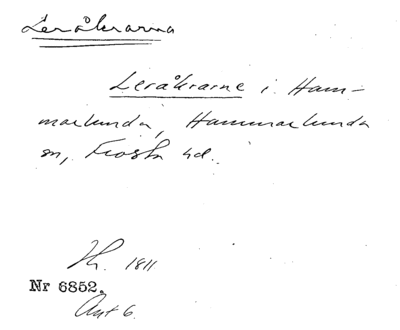 Leråkrarna
Leråkrarne i Ham-
marlunda, Hammarlunda
sn, Frosta hd.
Th. 1811
Nr 6852.
Akt 6.